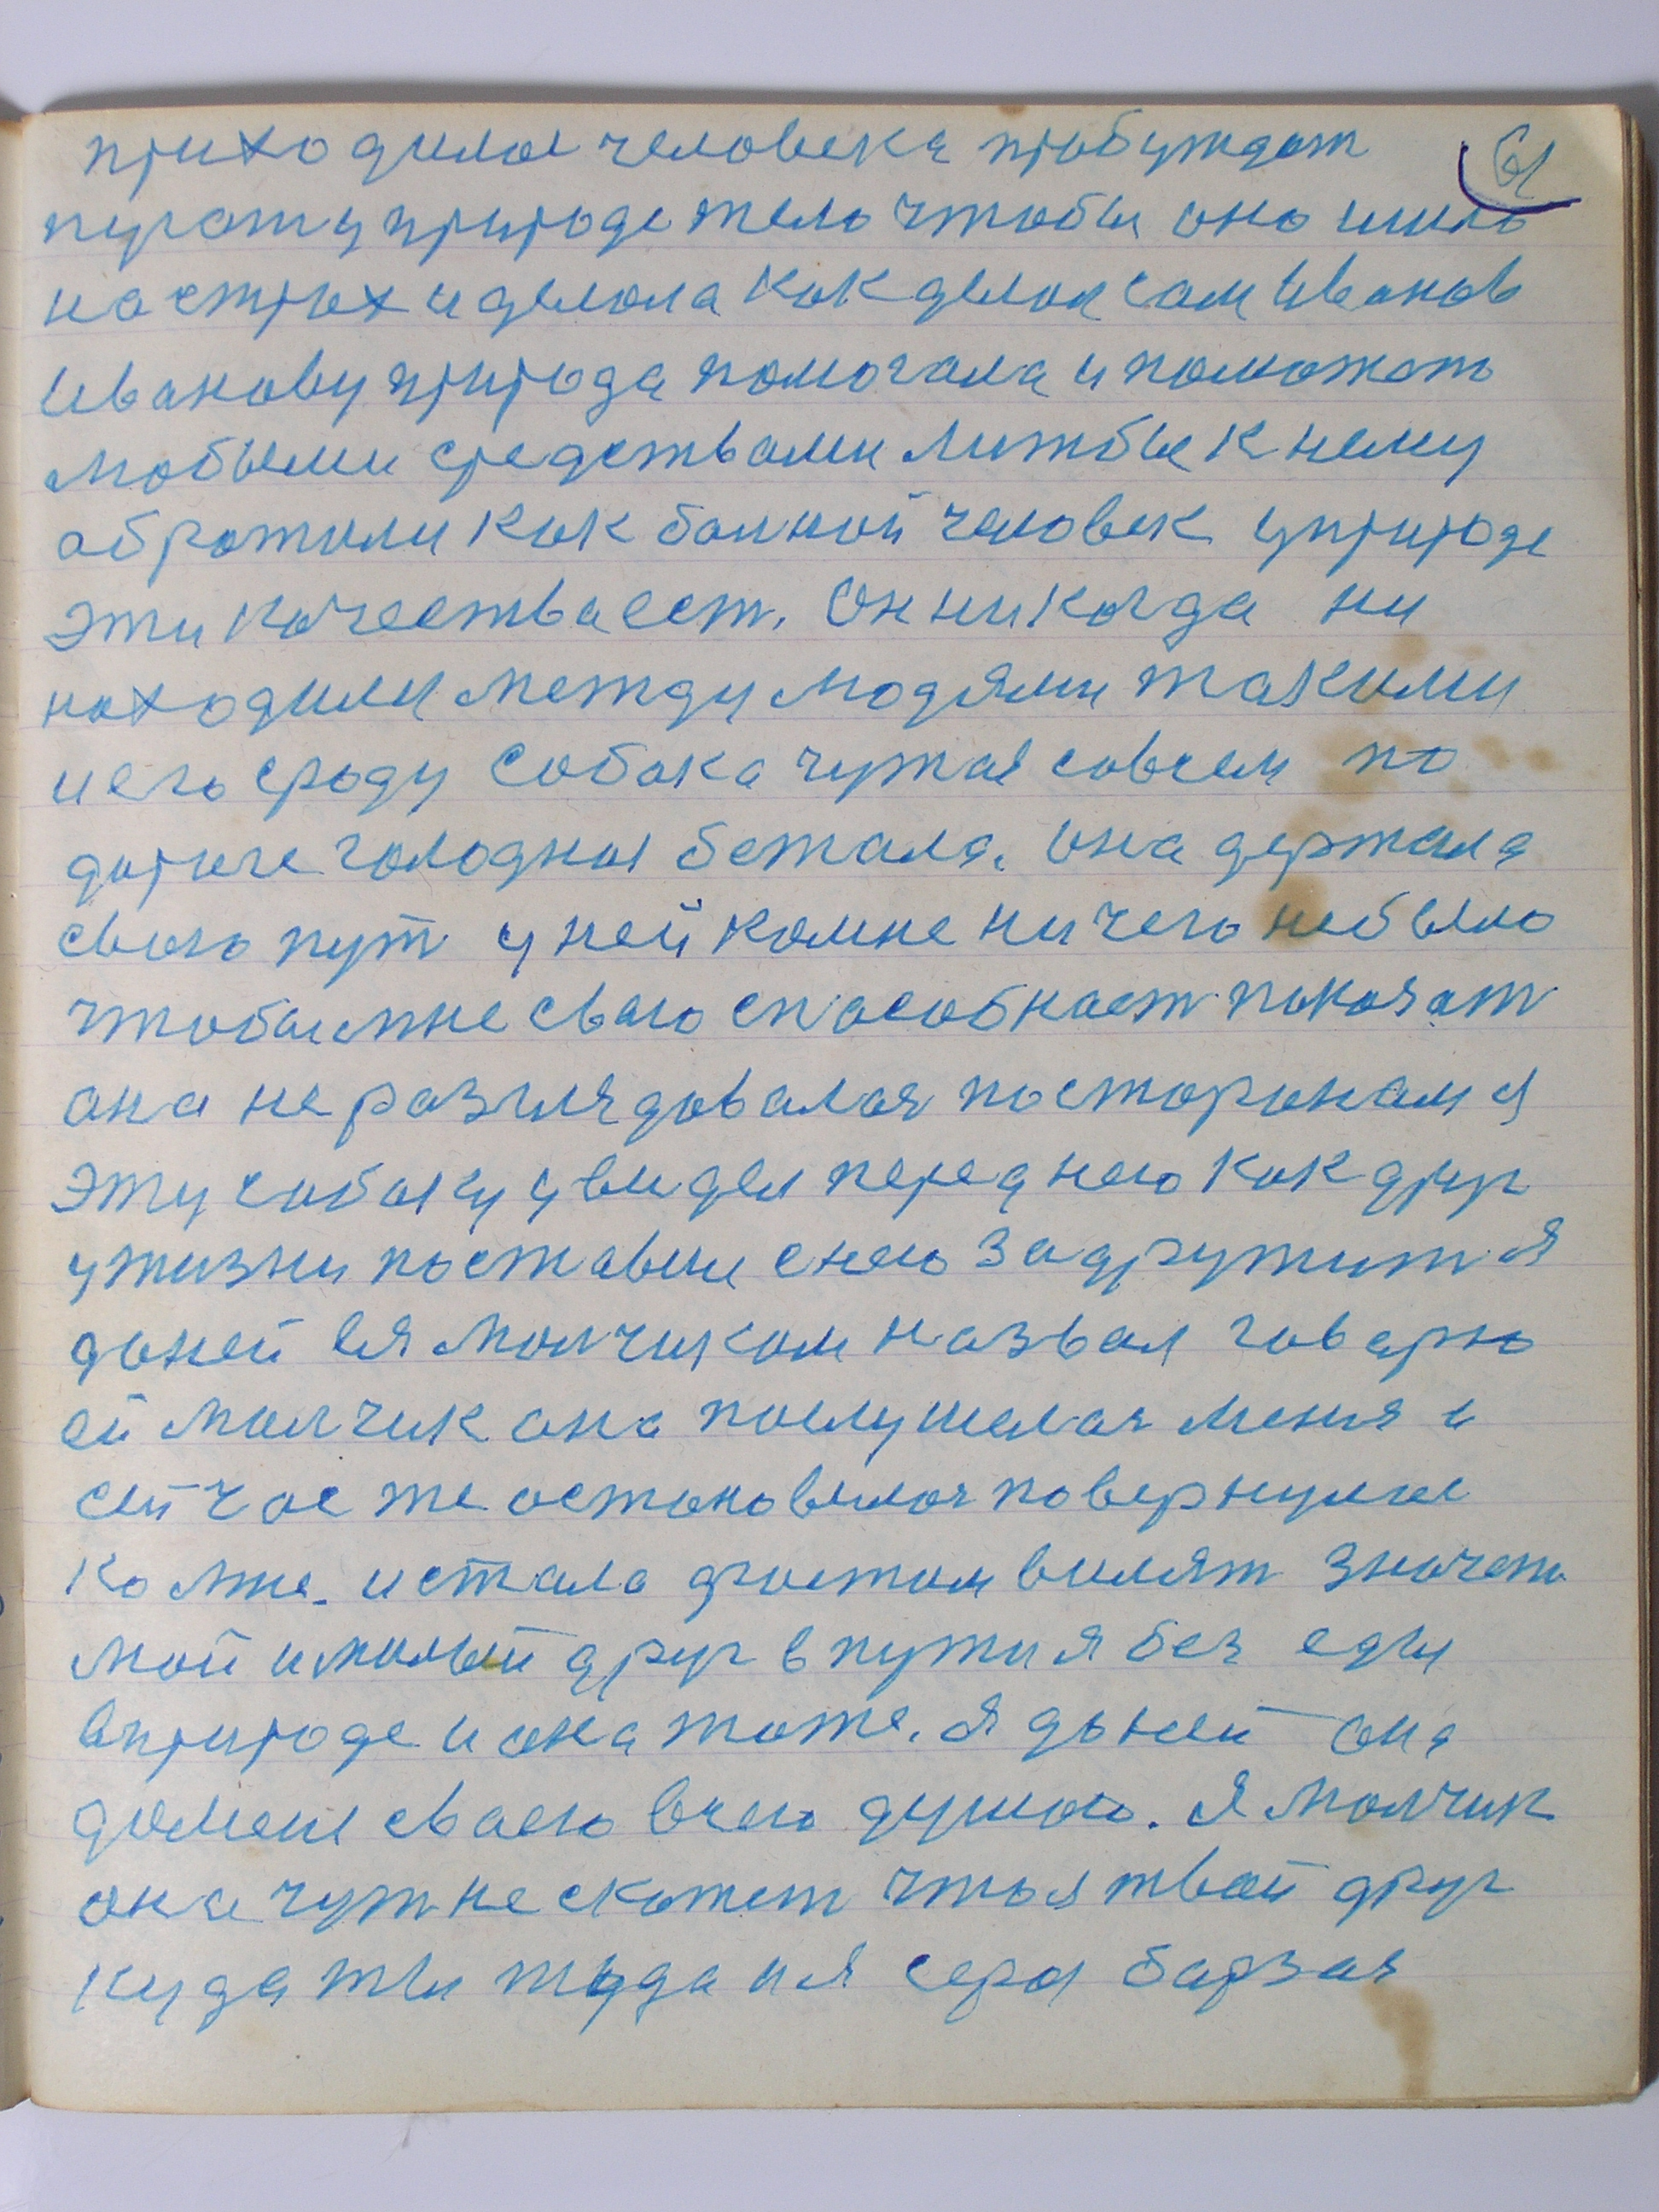 61
приходилос человека прабуждат
пугат у природе тело чтобы оно шило
на страх и делола как делол сам Иванов
Иванову природа помогала и поможеть
любыми средствами лижбы к нему
абротили как балной человек у природе
эти качества ест. Он никогда ни
находили между людями такими
и его сроду собака чужая совсем по
дароге голодная бежала. Она держала
своюю пут у ней комне ничего небыло
чтобы мне сваю спасобност показат
ана не разглядовалас посторонам я
эту собаку увидел перед нею как друг
у жизни поставил с нею задружит я
даней ея малчиком назвал говарю
ей малчик ана послушалас меня и
сейчас же астановилас повернулас
ко мне. и стала хвостом вилят значеть
мой и милый друг в пути я без еды
в природе и она тоже. я дъ ней она
дамене сваею всею душою. я малчик
она чут не скажет что я твой друг
куда ты туда и я сера барзая